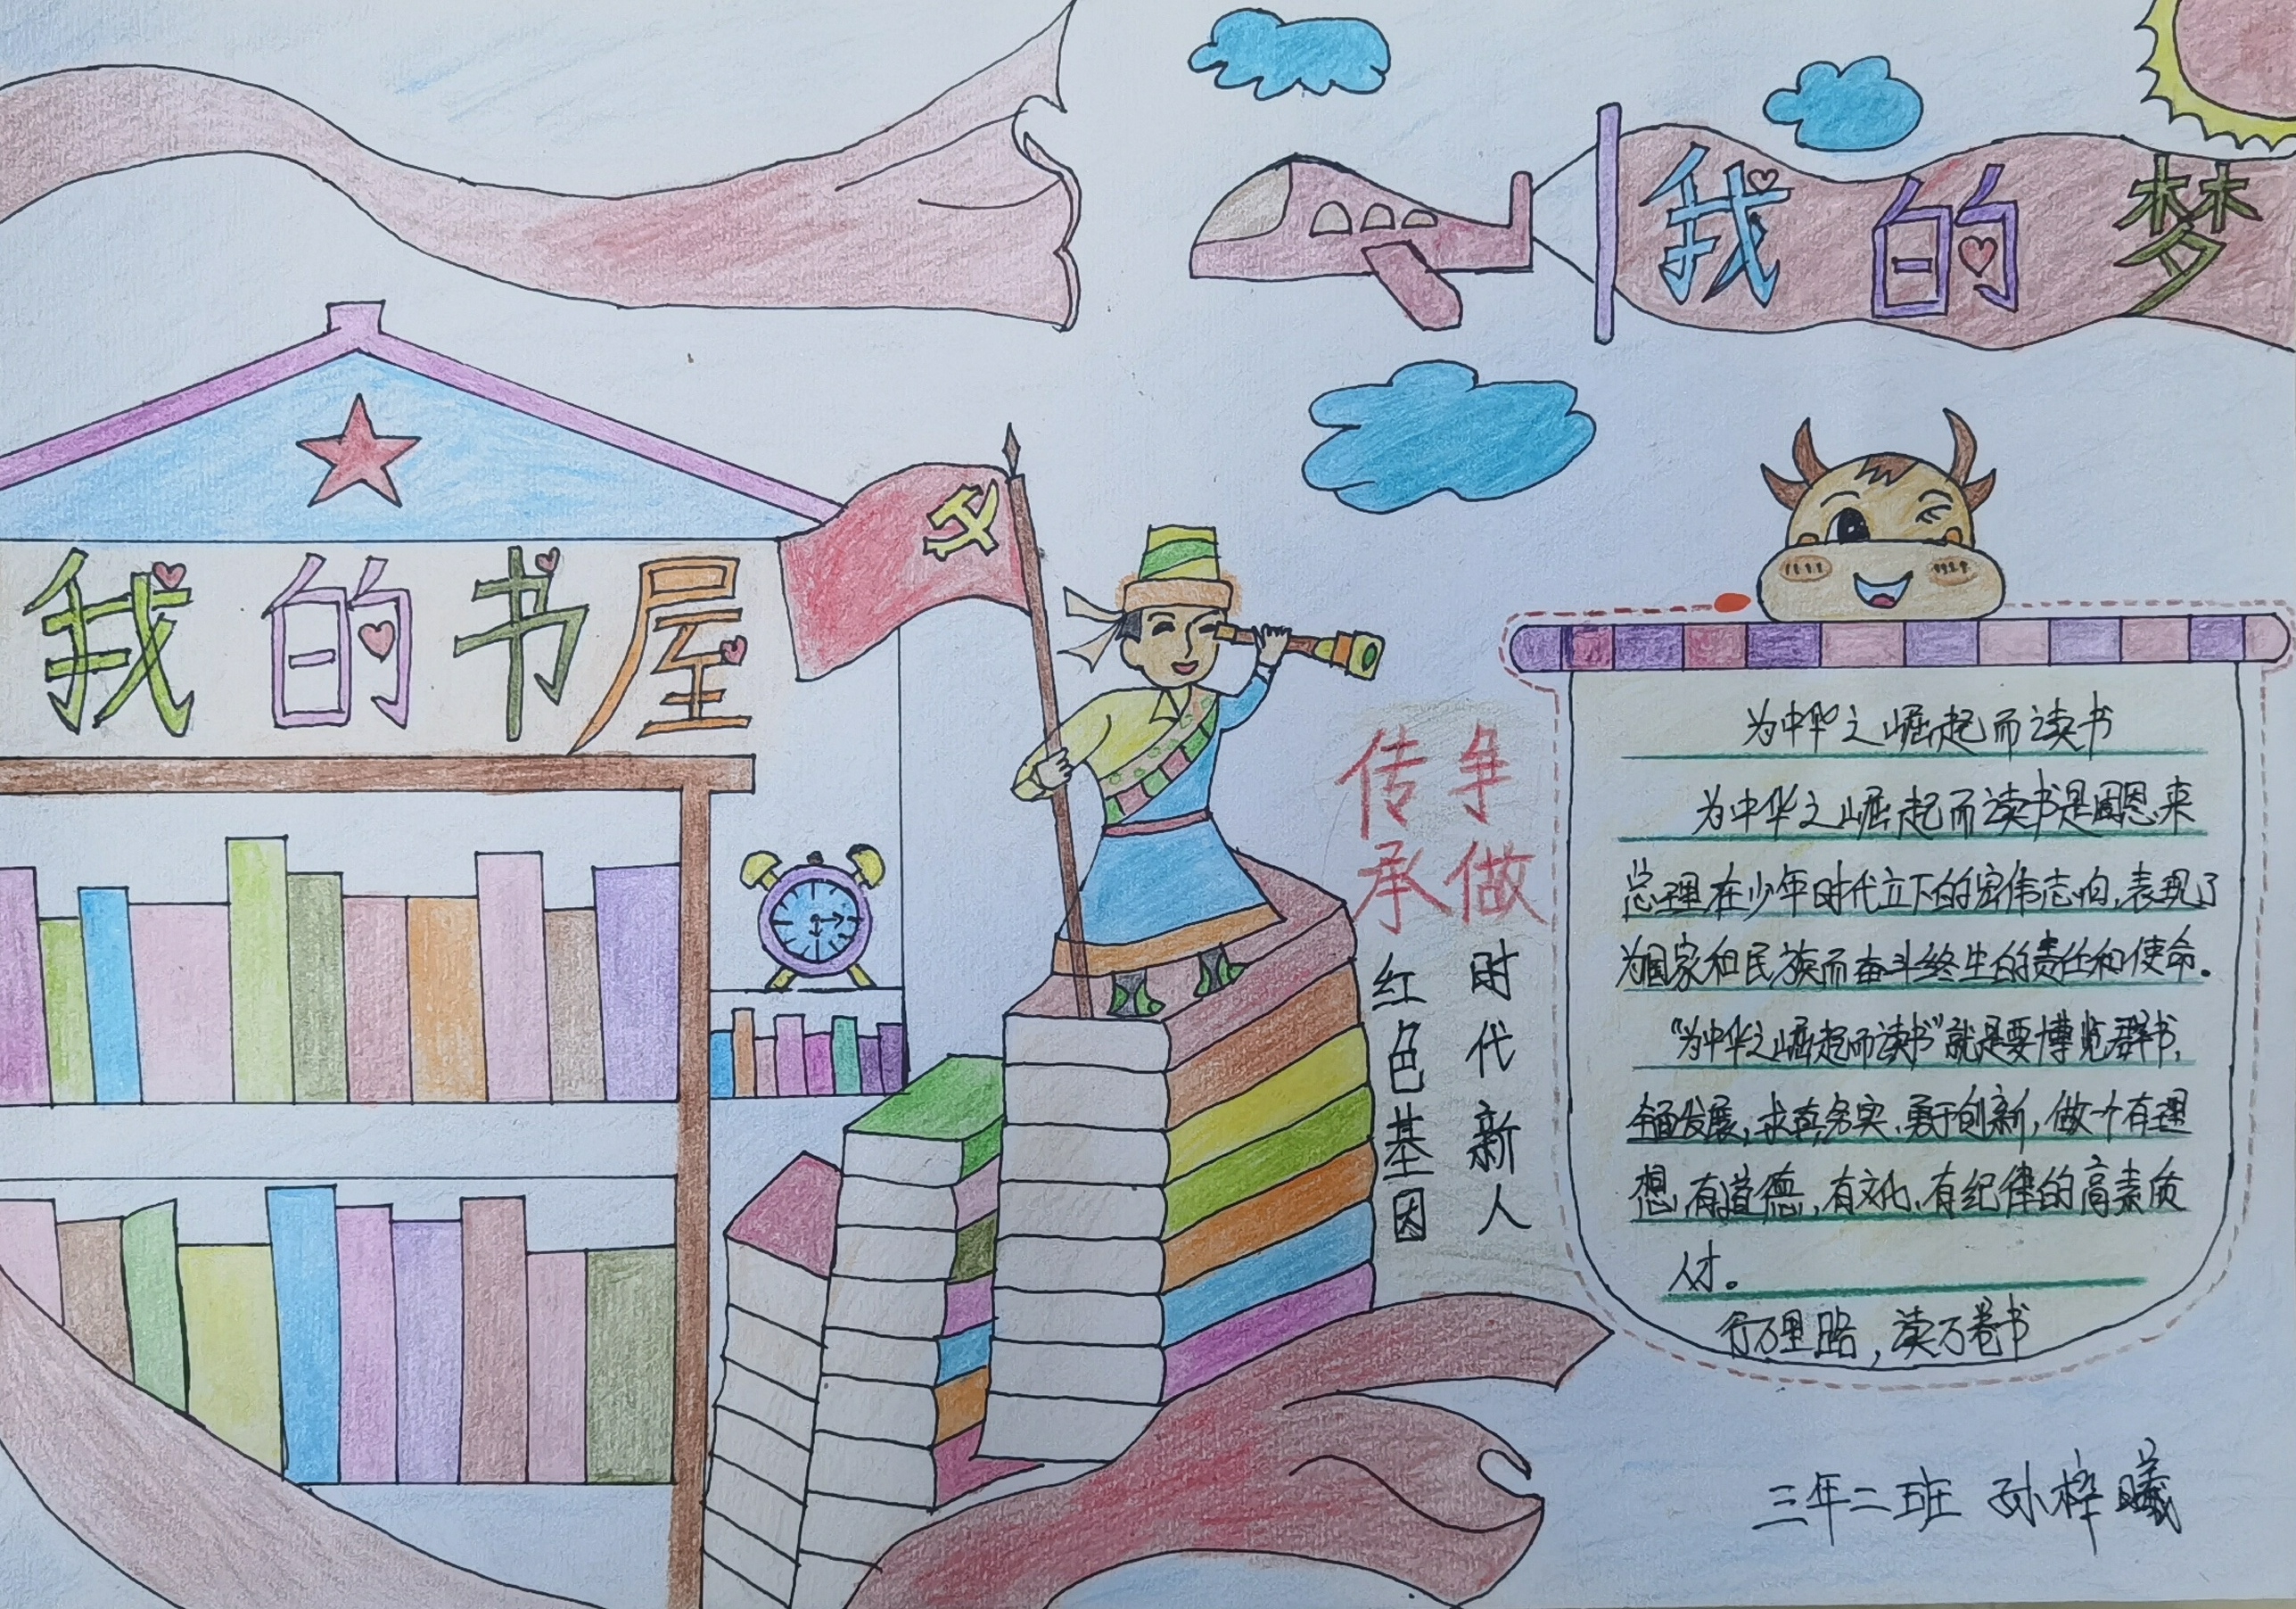 我的梦
我的书屋
传承
红色基因
争做
时代新人
为中华之崛起而读书
为中华之崛起而读书是周恩来
总理在少年时代立下的宏伟志向,表现了
为国家和民族而奋斗终生的责任和使命。
“为中华之崛起而读书”就是要博览群书,
全面发展,求真务实、勇于创新,做一个有理
想、有道德、有文化、有纪律的高素质
人才。
行万里路,读万卷书
三年二班 孙梓曦